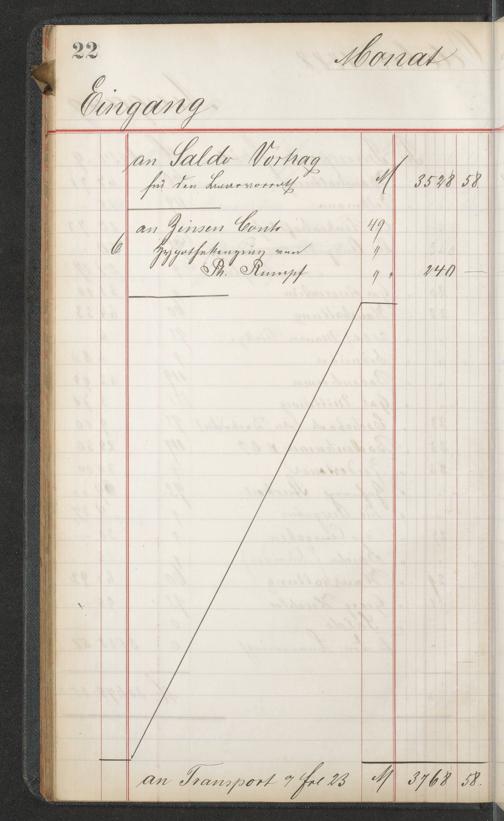 22
Monat
Eingang
an Saldo Vortrag
für den Baarvorrath M 3528 58.
an Zinsen Conto 49
6 Hypothekenzins von "
Ph. Rumpf " 240 —
an Transport M 3768 58.